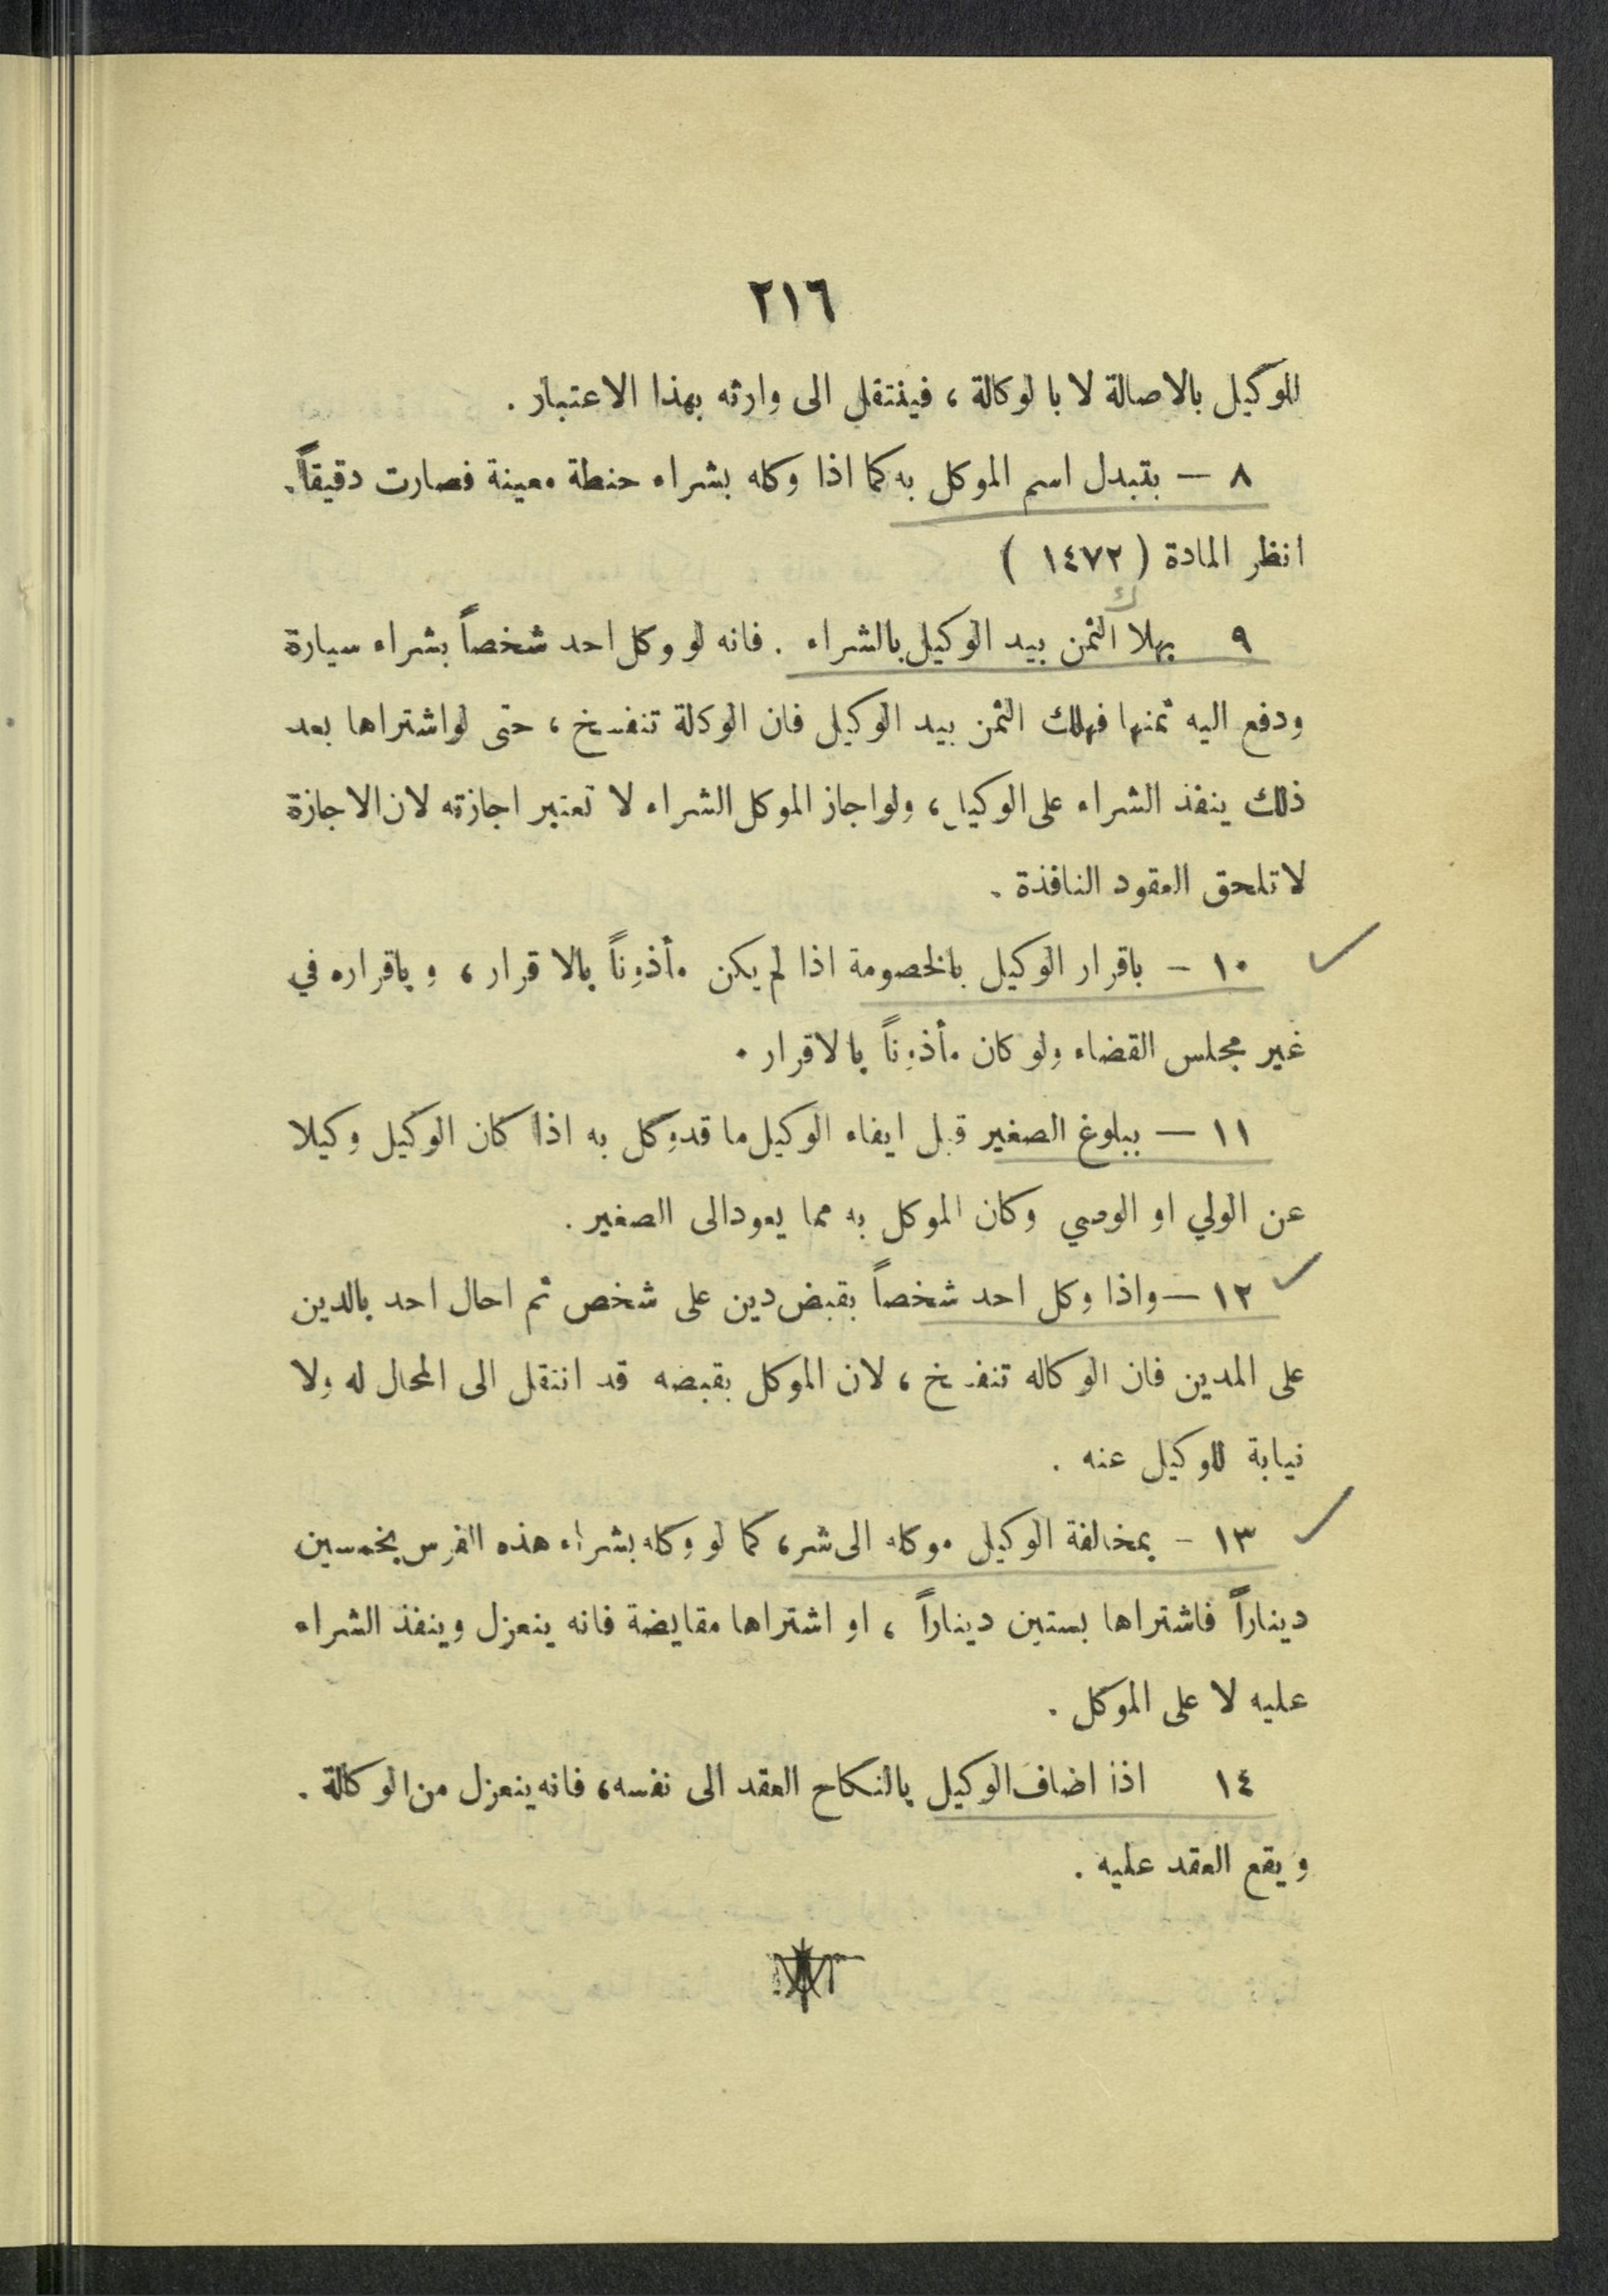 ٢١٦
للوكيل بالاصالة لا بالوكالة ، فينتقل الى وارثه بهذا الاعتبار .
٨ — بتبدل اسم الموكل به كما اذا وكله بشراء حنطة معينة فصارت دقيقاً .
انظر المادة ( ١٤٧٢ )
ك
٩ بهلا الثمن بيد الوكيل بالشراء . فانه لو وكل احد شخصاً بشراء سيارة
ودفع اليه ثمنها فهلك الثمن بيد الوكيل فان الوكالة تنفسخ ، حتى لو اشتراها بعد
ذلك ينفذ الشراء على الوكيل ، ولو اجاز الموكل الشراء لا تعتبر اجازته لان الاجازة
لا تلحق العقود النافذة .
١٠ – باقرار الوكيل بالخصومة اذا لم يكن مأذوناً بالاقرار ، وباقراره في
غير مجلس القضاء ولو كان مأذوناً بالاقرار .
١١ — ببلوغ الصغير قبل ايفاء الوكيل ما قد وكل به اذا كان الوكيل وكيلا
عن الولي او الوصي وكان الموكل به مما يعود الى الصغير .
١٢ — واذا وكل احد شخصاً بقبض دين على شخص ثم احال احد بالدين
على المدين فان الوكاله تنفسخ ، لان الموكل بقبضه قد انتقل الى المحال له ولا
نيابة للوكيل عنه .
١٣ – بمخالفة الوكيل موكله الى شر ، كما لو وكله بشراء هذه الفرس بخمسين
ديناراً فاشتراها بستين ديناراً ، او اشتراها مقايضة فانه ينعزل وينفذ الشراء
عليه لا على الموكل .
١٤ اذا اضاف الوكيل بالنكاح العقد الى نفسه ، فانه ينعزل من الوكالة .
ويقع العقد عليه .